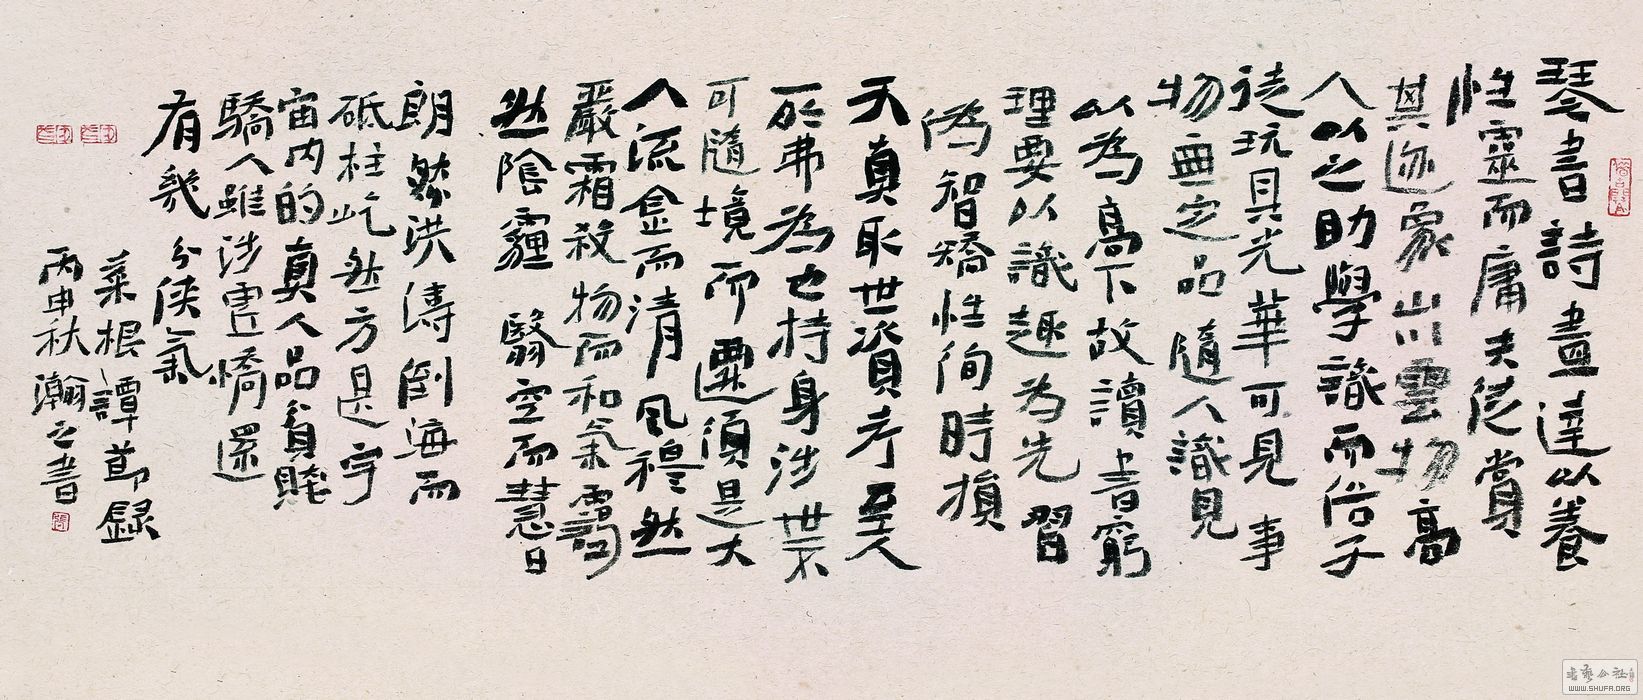 琴書詩畫達以養
性靈而庸夫徒賞
其迹象山川雲物高
人以之助學識而俗子
徒玩其光華可見事
物無定品隨人識見
以為高下故讀書窮
理要以識趣為先習
偽智矯性徇時損
天真取世資考至人
所弗為也持身涉世不
可隨境而遷須是大
火流金而清風穆然
嚴霜殺物而和氣靄
然陰霾翳空而慧日
朗然洪濤倒海而
砥柱屹然方是宇
宙內的真人品貧賤
驕人雖涉虛憍還
有幾分俠氣
菜根譚節錄
丙申秋瀚之書
WWW.SHUFA.ORG